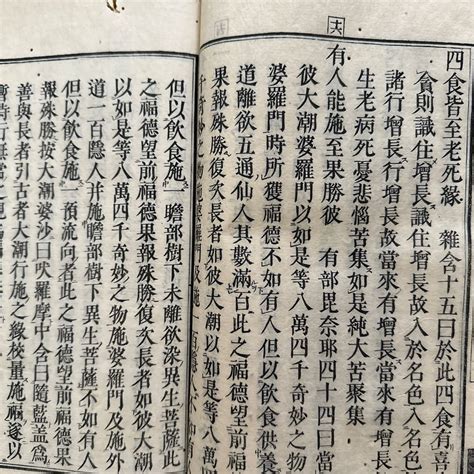 十六
四食皆至老死緣 雜含十五曰於此四食有喜
貪則識住增長識住增長故入於名色入名色
諸行增長行增長故當來有增長當來有增長
生老病死憂悲惱苦集如是純大苦聚集
有人能施至果勝彼 有部毘奈耶四十四曰
彼大潮婆羅門以如是等八萬四千奇妙之物
婆羅門時所獲福德不如有人但以飲食供養
道離欲五通仙人其數滿百此之福德望前福
果報殊勝復次長者如彼大潮以如是等八萬
千奇妙之物施
但以飲食施一贍部樹下未離欲染異生菩薩此
之福德望前福德果報殊勝復次長者如彼大潮
以如是等八萬四千奇妙之物施婆羅門及施外
道一百隱人并施贍部樹下異生菩薩不如有人
但以飲食施一預流向者此之福德望前福德果
報殊勝按大潮婆沙曰吠羅摩中含曰隨藍蓋爲
善與長者引古者大潮行施之緣校量施福遂以